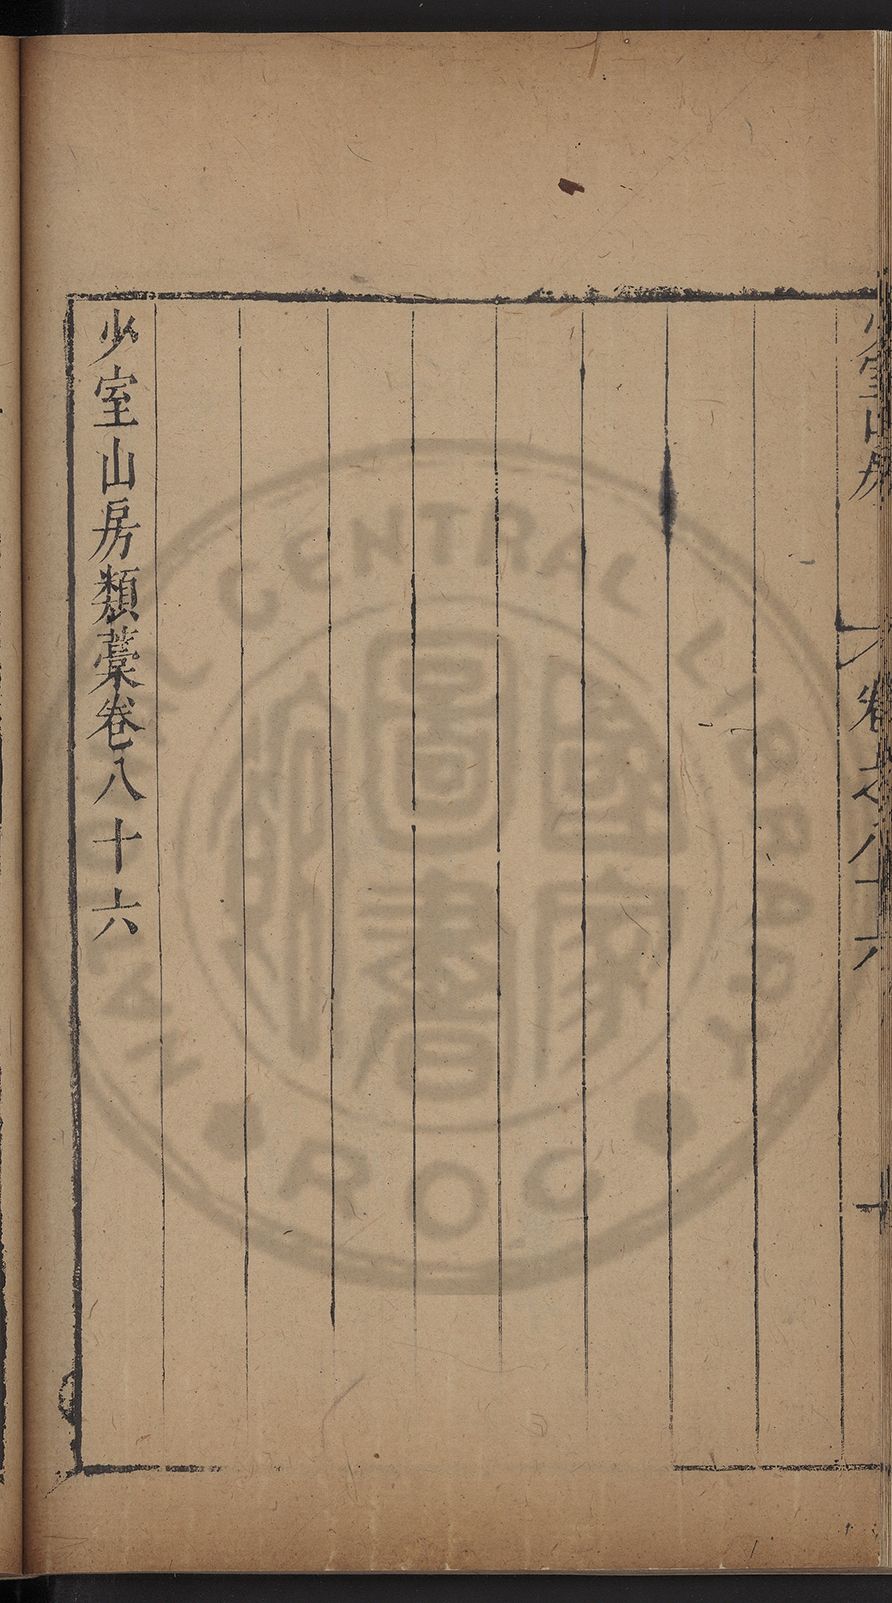 少室山房 卷之八十六 十
少室山房類藁卷八十六
NATIONAL CENTRAL LIBRARY
國家圖書館
ROC